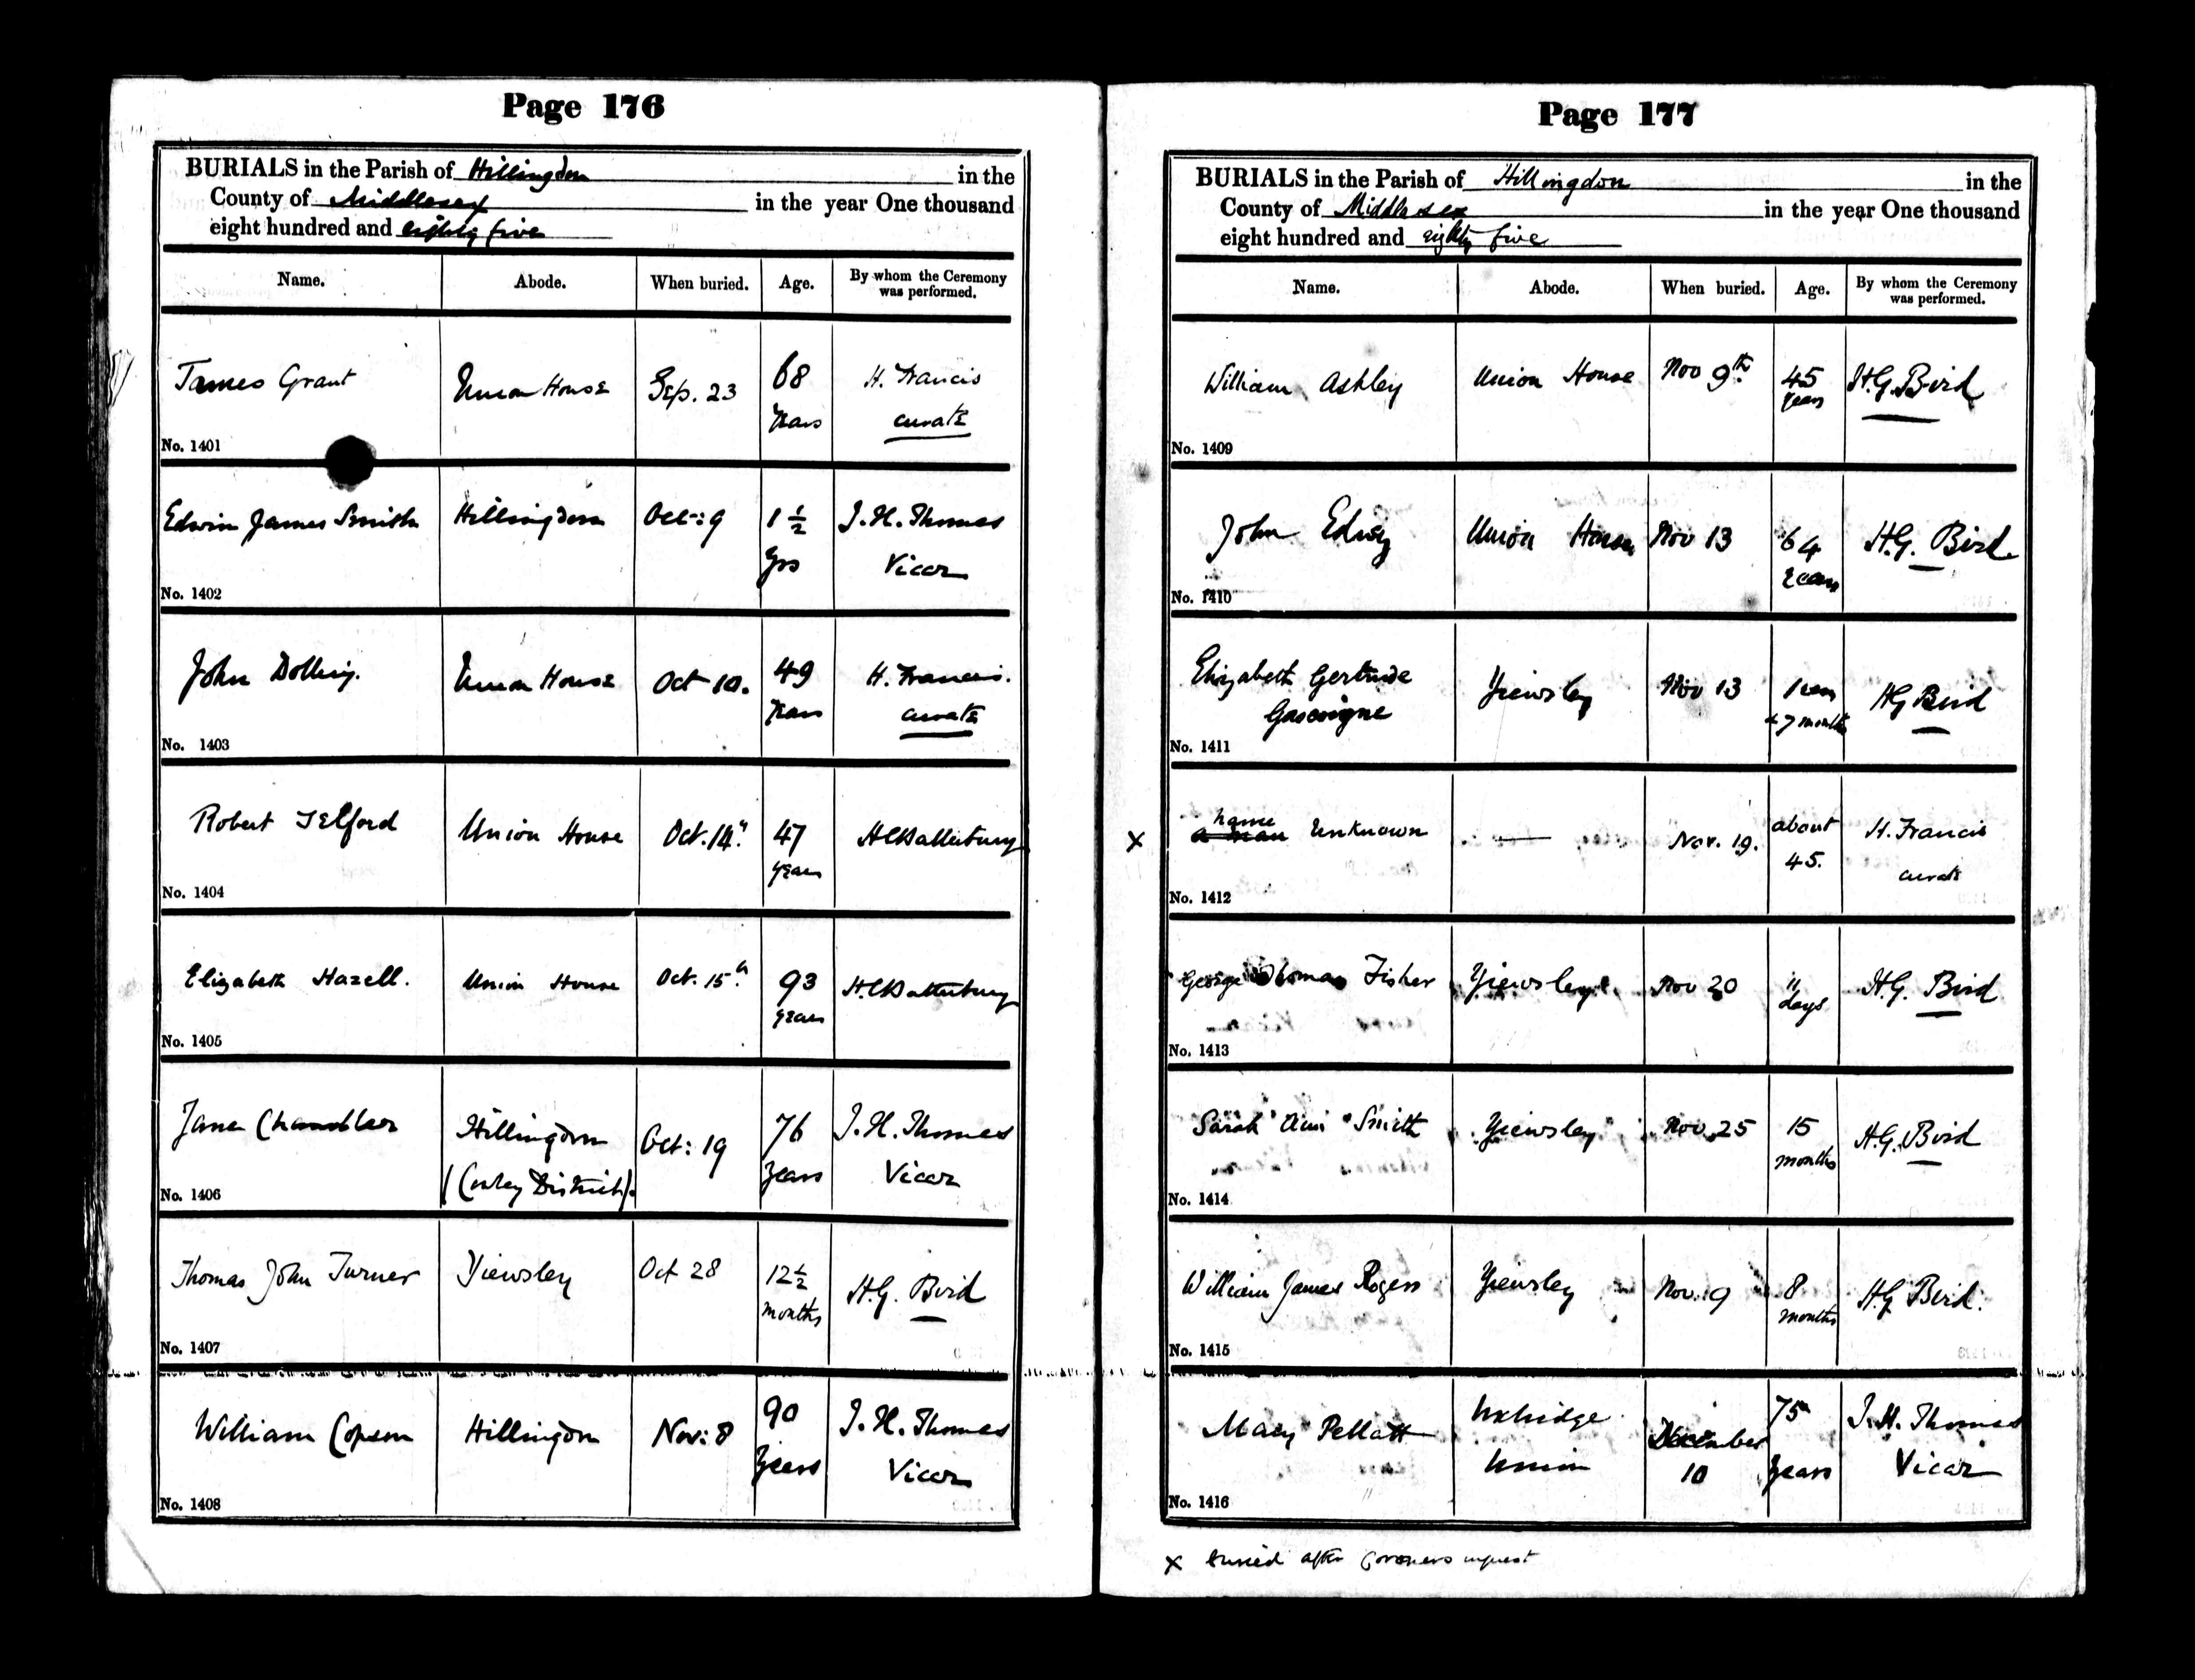 Page 176
BURIALS in the Parish of Hillingdon in the
County of Middlesex in the year One thousand
eight hundred and eighty five
Name. Abode. When buried. Age. By whom the Ceremony was performed.
James Grant Union House Sep. 23 68 years H. Francis curate
No. 1401
Edwin James Smith Hillingdon Oct: 9 1 1/2 yrs J. H. Thomas Vicar
No. 1402
John Dolling. Union House Oct 10. 49 years H. Francis. curate
No. 1403
Robert Telford Union House Oct. 14th 47 years
No. 1404
Elizabeth Hazell. Union House Oct. 15th 93 years
No. 1405
Jane Chandler Hillingdon (Cowley District). Oct: 19 76 years J. H. Thomas Vicar
No. 1406
Thomas John Turner Yiewsley Oct 28 12 1/2 months H.G. Bird
No. 1407
William Hillingdon Nov: 8 90 years J. H. Thomas Vicar
No. 1408
Page 177
BURIALS in the Parish of Hillingdon in the
County of Middlesex in the year One thousand
eight hundred and eighty five
Name. Abode. When buried. Age. By whom the Ceremony was performed.
William Ashley Union House Nov 9th. 45 years H.G. Bird
No. 1409
John Union House Nov 13 64 years H.G. Bird
No. 1410
Elizabeth Gertrude Gascoigne Yiewsley Nov 13 1 year + 7 months HG Bird
No. 1411
x a man name Unknown — Nov. 19. about 45. H. Francis curate
No. 1412
George Thomas Fisher Yiewsley Nov 20 11 days H.G. Bird
No. 1413
Sarah Smith Yiewsley Nov 25 15 months H.G. Bird
No. 1414
William James Rogers Yiewsley Nov. 9 8 months HG Bird.
No. 1415
Mary Pellatt Uxbridge Union December 10 75 years J. H. Thomas Vicar
No. 1416
x buried after Coroners inquest